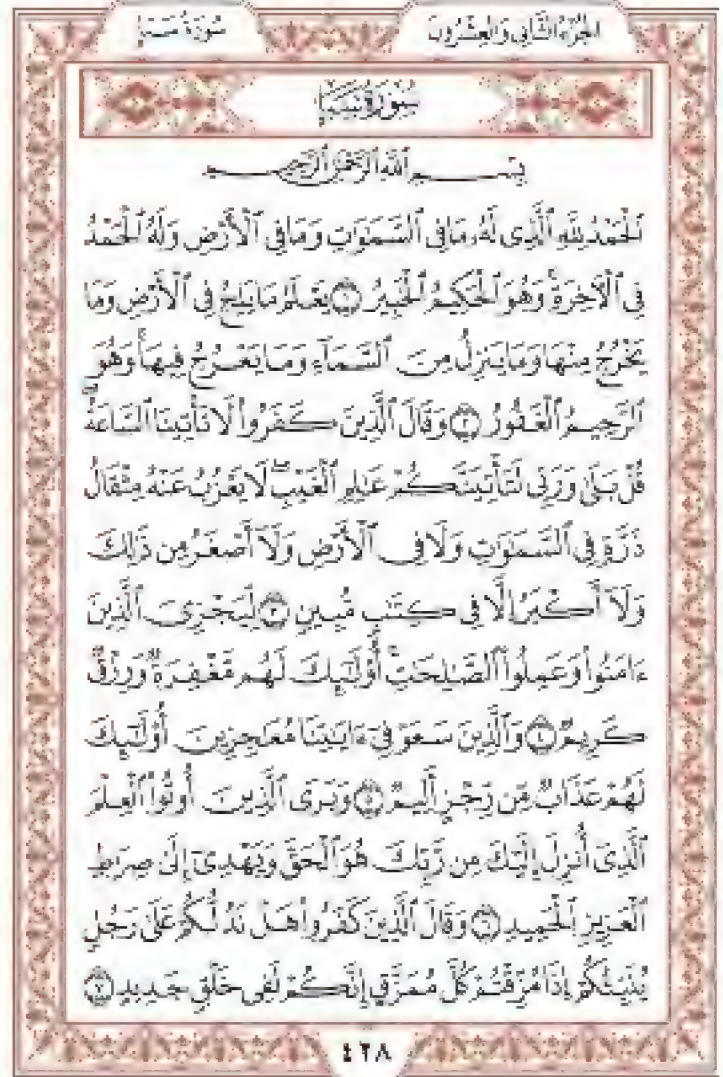 الجزء الثاني والعشرون سورة سبإ
سُورَةُ سَبَإٍ
بِسْمِ ٱللَّهِ ٱلرَّحْمَٰنِ ٱلرَّحِيمِ
ٱلْحَمْدُ لِلَّهِ ٱلَّذِى لَهُۥ مَا فِى ٱلسَّمَٰوَٰتِ وَمَا فِى ٱلْأَرْضِ وَلَهُ ٱلْحَمْدُ
فِى ٱلْءَاخِرَةِ ۚ وَهُوَ ٱلْحَكِيمُ ٱلْخَبِيرُ ١ يَعْلَمُ مَا يَلِجُ فِى ٱلْأَرْضِ وَمَا
يَخْرُجُ مِنْهَا وَمَا يَنزِلُ مِنَ ٱلسَّمَآءِ وَمَا يَعْرُجُ فِيهَا ۚ وَهُوَ
ٱلرَّحِيمُ ٱلْغَفُورُ ٢ وَقَالَ ٱلَّذِينَ كَفَرُوا۟ لَا تَأْتِينَا ٱلسَّاعَةُ ۖ
قُلْ بَلَىٰ وَرَبِّى لَتَأْتِيَنَّكُمْ عَٰلِمِ ٱلْغَيْبِ ۖ لَا يَعْزُبُ عَنْهُ مِثْقَالُ
ذَرَّةٍ فِى ٱلسَّمَٰوَٰتِ وَلَا فِى ٱلْأَرْضِ وَلَآ أَصْغَرُ مِن ذَٰلِكَ
وَلَآ أَكْبَرُ إِلَّا فِى كِتَٰبٍ مُّبِينٍ ٣ لِّيَجْزِىَ ٱلَّذِينَ
ءَامَنُوا۟ وَعَمِلُوا۟ ٱلصَّٰلِحَٰتِ ۚ أُو۟لَٰٓئِكَ لَهُم مَّغْفِرَةٌ وَرِزْقٌ
كَرِيمٌ ٤ وَٱلَّذِينَ سَعَوْ فِىٓ ءَايَٰتِنَا مُعَٰجِزِينَ أُو۟لَٰٓئِكَ
لَهُمْ عَذَابٌ مِّن رِّجْزٍ أَلِيمٌ ٥ وَيَرَى ٱلَّذِينَ أُوتُوا۟ ٱلْعِلْمَ
ٱلَّذِىٓ أُنزِلَ إِلَيْكَ مِن رَّبِّكَ هُوَ ٱلْحَقَّ وَيَهْدِىٓ إِلَىٰ صِرَٰطِ
ٱلْعَزِيزِ ٱلْحَمِيدِ ٦ وَقَالَ ٱلَّذِينَ كَفَرُوا۟ هَلْ نَدُلُّكُمْ عَلَىٰ رَجُلٍ
يُنَبِّئُكُمْ إِذَا مُزِّقْتُمْ كُلَّ مُمَزَّقٍ إِنَّكُمْ لَفِى خَلْقٍ جَدِيدٍ ٧
٤٢٨